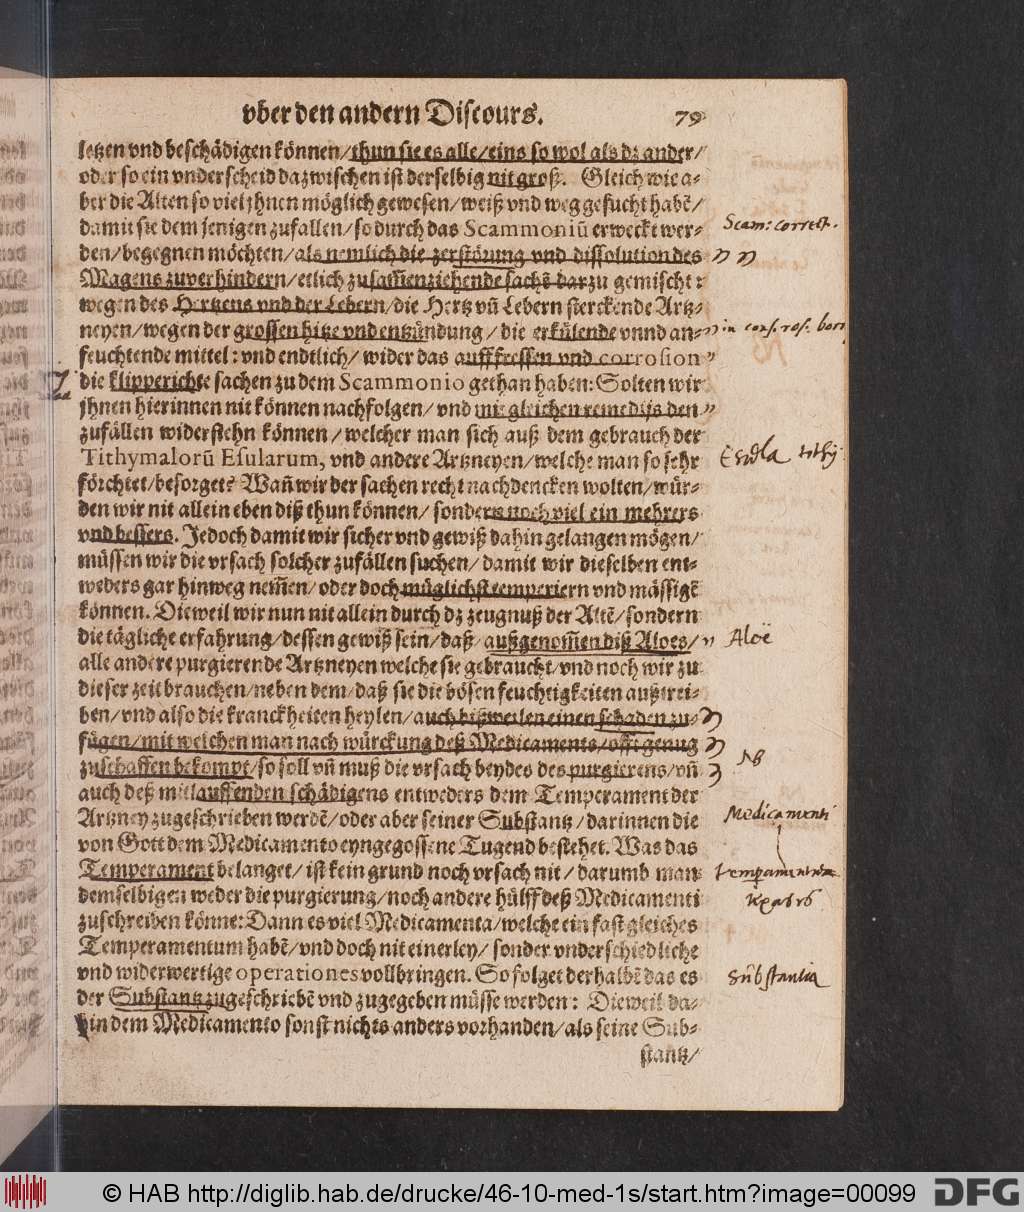 vber den andern Discours.
79
letzen vnd beschädigen können/thun sie es alle/eins so wol als dz ander/
oder so ein vnderscheid dazwischen ist derselbig nit groß. Gleich wie a-
ber die Alten so viel jhnen möglich gewesen/weiß vnd weg gesucht habẽ/
damit sie dem jenigen zufallen/so durch das Scammoniũ erweckt wer-
den/begegnen möchten/als nemlich die zerstörung vnd dissolution des
Magens zuverhindern/etlich zusam̃enziehende sachẽ darzu gemischt:
wegen des Hertzens vnd der Lebern/die Hertz vñ Lebern sterckende Artz-
neyen/wegen der grossen hitze vnd entzündung/die erkülende vnnd an-
feuchtende mittel: vnd endtlich/wider das aufffressen vnd corrosion
die klipperichte sachen zu dem Scammonio gethan haben: Solten wir
jhnen hierinnen nit können nachfolgen/vnd mit gleichen remedijs den
zufällen widerstehn können/welcher man sich auß dem gebrauch der
Tithymalorũ Esularum, vnd andere Artzneyen/welche man so sehr
förchtet/besorget? Wañ wir der sachen recht nachdencken wolten/wür-
den wir nit allein eben diß thun können/sondern noch viel ein mehrers
vnd bessers. Jedoch damit wir sicher vnd gewiß dahin gelangen mögen/
müssen wir die vrsach solcher zufällen suchen/damit wir dieselben ent-
weders gar hinweg nem̃en/oder doch müglichst temperiern vnd mässigẽ
können. Dieweil wir nun nit allein durch dz zeugnuß der Altẽ/sondern
die tägliche erfahrung/dessen gewiß sein/daß/außgenom̃en diß Aloes/
alle andere purgierende Artzneyen welche sie gebraucht/vnd noch wir zu
dieser zeit brauchen/neben dem/daß sie die bösen feuchtigkeiten außtrei-
ben/vnd also die kranckheiten heylen/auch bißweilen einen schaden zu-
fügen/mit welchen man nach würckung deß Medicaments/offt genug
zuschaffen bekompt/so soll vñ muß die vrsach beydes des purgierens/vñ
auch deß mitlauffenden schädigens entweders dem Temperament der
Artzney zugeschrieben werdẽ/oder aber seiner Substantz/darinnen die
von Gott dem Medicamento eyngegossene Tugend bestehet. Was das
Temperament belanget/ist kein grund noch vrsach nit/darumb man
demselbigen weder die purgierung/noch andere hülff deß Medicamenti
zuschreiben könne: Dann es viel Medicamenta/welche ein fast gleiches
Temperamentum habẽ/vnd doch nit einerley/sonder vnderschiedliche
vnd widerwertige operationes vollbringen. So folget derhalbẽ das es
der Substantz zugeschriebẽ vnd zugegeben müsse werden: Dieweil da-
hin dem Medicamento sonst nichts anders vorhanden/als seine Sub-
stantz/
Scam: correct.
in cons. ros.
Esula tithy
Aloë
NB
Medicamenti
temperamentum
Substantia
© HAB http://diglib.hab.de/drucke/46-10-med-1s/start.htm?image=00099
DFG